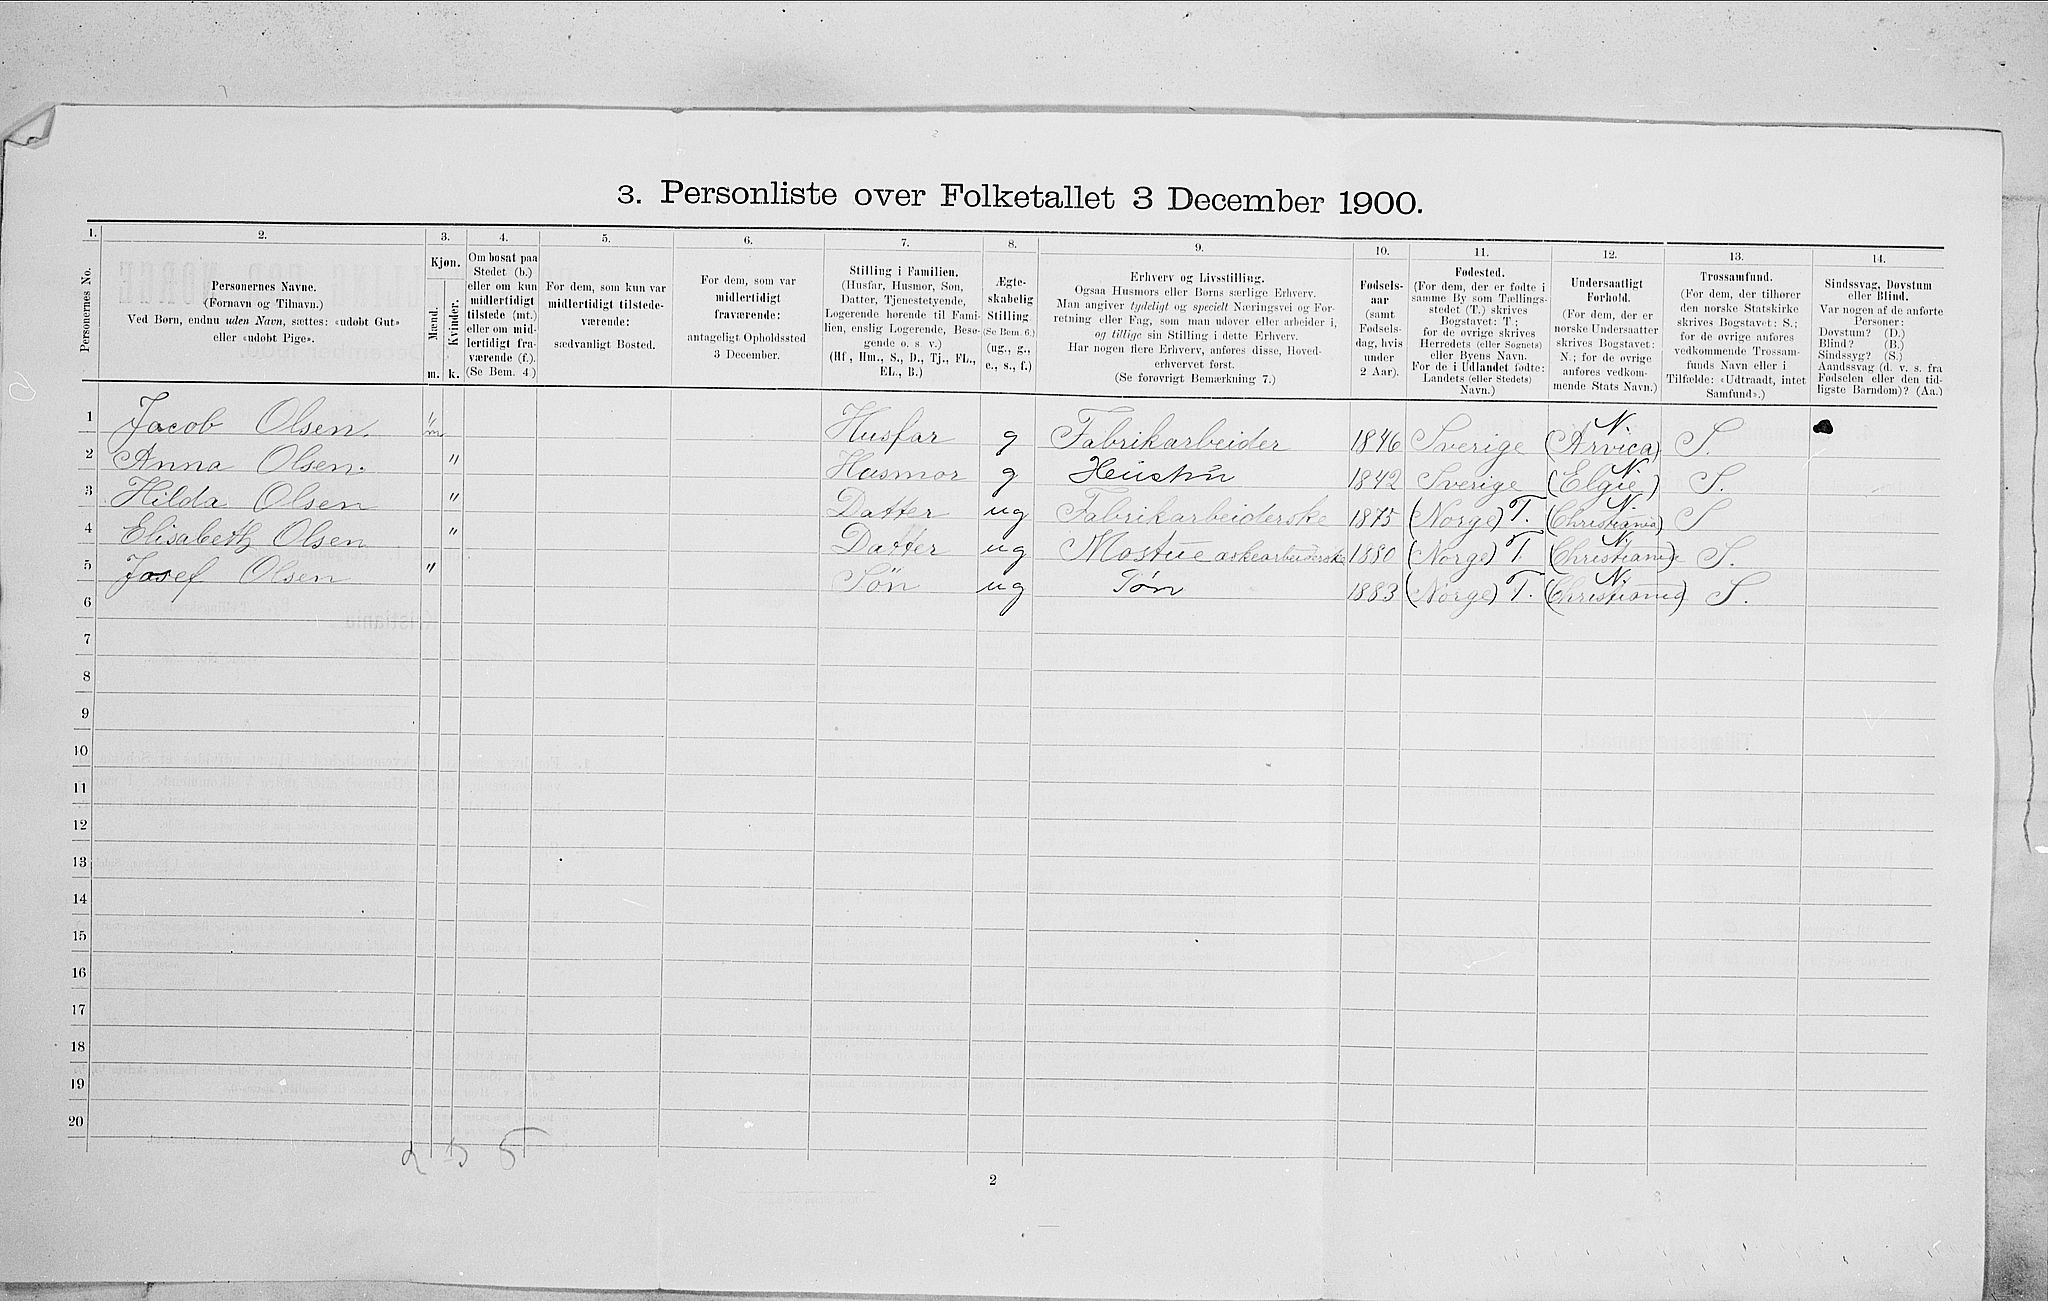 3. Personliste over Folketallet 3 December 1900.
1. 2. 3. 4. 5. 6. 7. 8. 9. 10. 11. 12. 13. 14.
Personernes No.
Personernes Navne.
(Fornavn og Tilnavn.)
Ved Børn, endnu uden Navn, sættes: «udobt Gut»
eller «udobt Pige».
Kjøn.
Mænd.
Kvinder.
m. k.
Om bosat paa
Stedet (b.)
eller om kun
midlertidigt
tilstede (mt.)
eller om mid-
lertidigt fra-
værende (f.).
(Se Bem. 4.)
For dem, som kun var
midlertidigt tilstede-
værende:
sædvanligt Bosted.
For dem, som var
midlertidigt
fraværende:
antageligt Opholdssted
3 December.
Stilling i Familien.
(Husfar, Husmor, Søn,
Datter, Tjenestetyende,
Logerende hørende til Fami-
lien, enslig Logerende, Besø-
gende o. s. v.)
(Hf., Hm., S., D., Tj., FL.,
EL., B.)
Ægte-
skabelig
Stilling.
(Se Bem. 6.)
(ug., g.,
e., s., f.)
Erhverv og Livsstilling.
Ogsaa Husmors eller Børns særlige Erhverv.
Man angiver tydeligt og specielt Næringsvei og For-
retning eller Fag, som man udøver eller arbeider i,
og tillige sin Stilling i dette Erhverv.
Har nogen flere Erhverv, anføres disse, Hoved-
erhvervet først.
(Se forøvrigt Bemærkning 7.)
Fødsels-
aar
(samt
Fødsels-
dag, hvis
under
2 Aar).
Fødested.
(For dem, der er fødte i
samme By som Tællings-
stedet (T.) skrives
Bogstavet: T.;
for de øvrige skrives
Herredets (eller Sognets)
eller Byens Navn.
For de i Udlandet fødte:
Landets (eller Stedets)
Navn.)
Undersaatligt
Forhold.
(For dem, der er
norske Undersaatter
skrives Bogstavet:
N.; for de øvrige
anføres vedkom-
mende Stats Navn.)
Trossamfund.
(For dem, der tilhører
den norske Statskirke
skrives Bogstavet: S.;
for de øvrige anføres
vedkommende Trossam-
funds Navn eller i
Tilfælde: «Udtraadt, intet
Samfund».)
Sindssvag, Døvstum
eller Blind.
Var nogen af de anførte
Personer:
Døvstum? (D.)
Blind? (B.)
Sindssyg? (S.)
Aandssvag (d. v. s. fra
Fødselen eller den tid-
ligste Barndom)? (Aa.)
1 Jacob Olsen. Husfar g Fabrikarbeider 1846 Sverige (Arvica) N. S.
2 Anna Olsen. " Husmor g Hustru 1842 Sverige (Elgie) N. S.
3 Hilda Olsen " Datter ug Fabrikarbeiderske 1875 (Norge) T. (Christiania) N. S
4 Elisabeth Olsen " Datter ug 1880 (Norge) T. (Christiania) N. S.
5 Josef Olsen " Søn ug Søn 1883 (Norge) T. (Christiania) N. S.
6
7
8
9
10
11
12
13
14
15
16
17
18
19
20
2 5
2